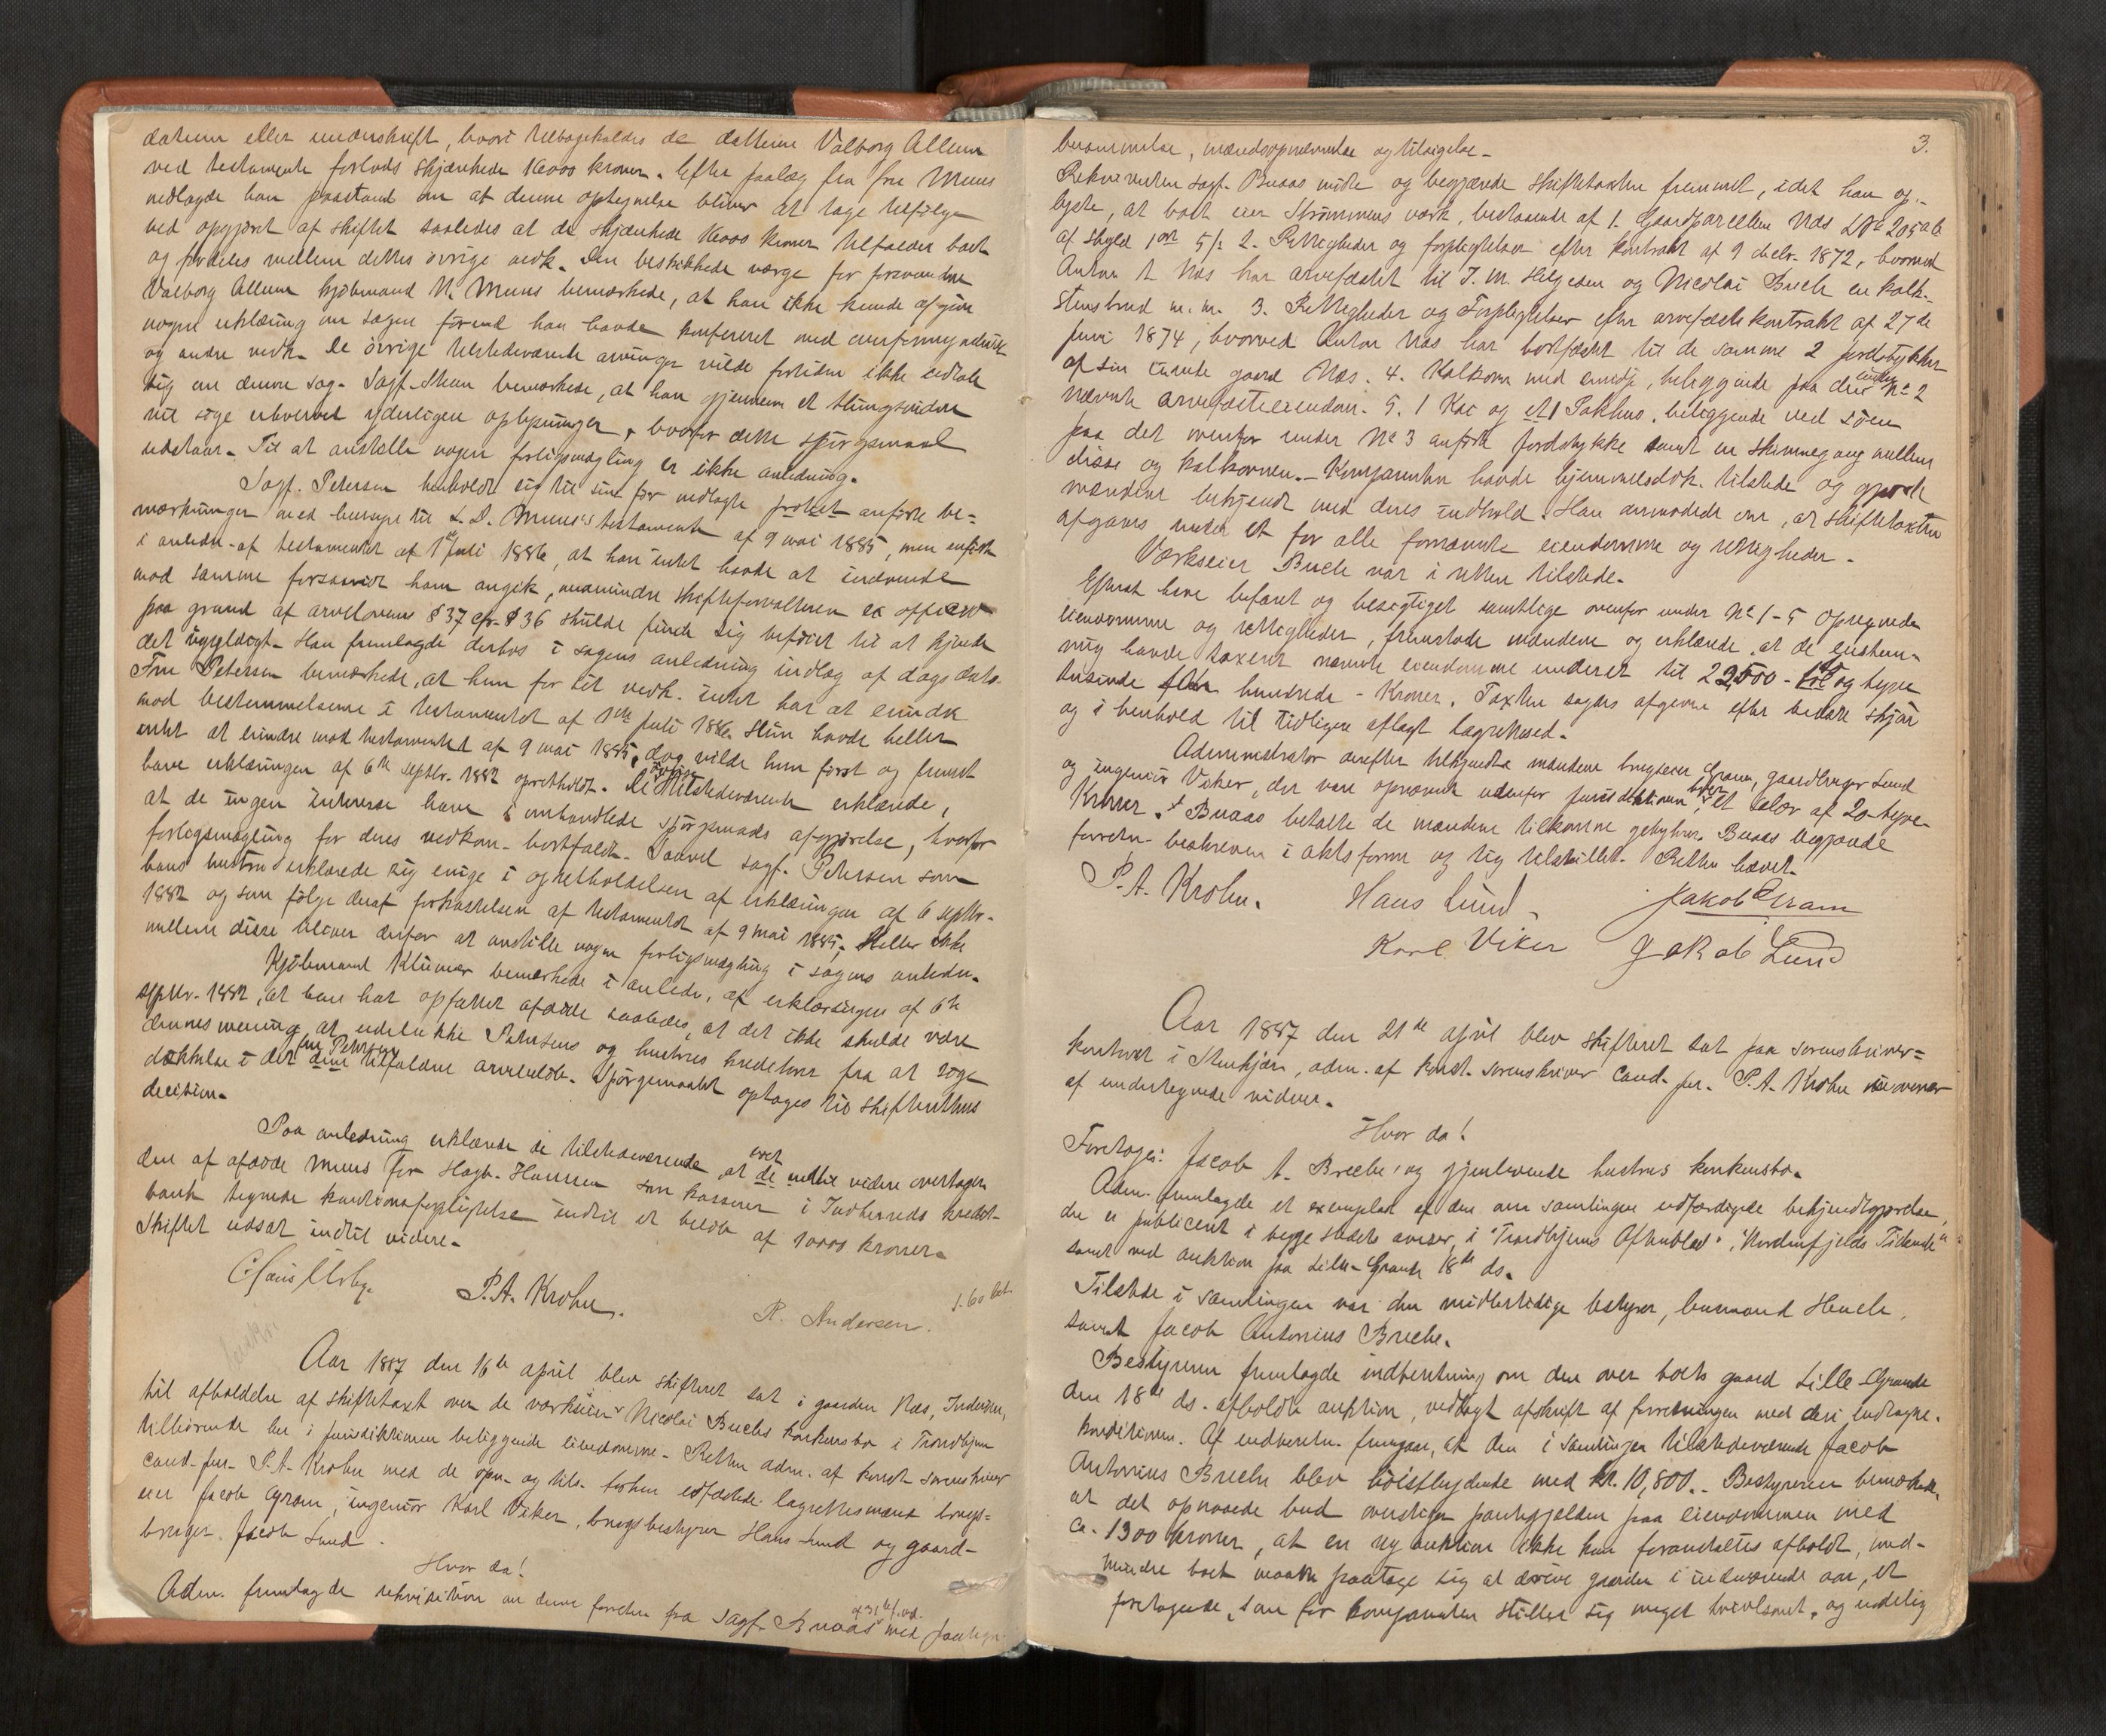 datum eller underskrift, hvori tilbagekaldes de datteren Valborg Allum
ved testamente forlods skjænkede 16000 kroner. Efter paalæg fra fru Muus
nedlagde han paastand om at denne optegnelse bliver at tage tilfølge
ved opgjøret af skiftet saaledes at de skjænkede 16000 kroner tilfalder boet
og fordeles mellem dettes øvrige vedk. Den beskikkede værge for
Valborg Allum kjøbmand N. Muus bemærkede, at han ikke kunde afgive
nogen erklæring om sagen førend han havde konfereret med overformynderiet
og andre vedk. De øvrige tilstedeværende arvinger vilde fortiden ikke udtale
sig om denne sag. Sagf. bemærkede, at han gjennem et tingsvidne
vil søge erhvervet yderligere oplysninger, hvorfor dette spørgsmaal
udstaar. Til at anstille nogen forligsmægling er ikke anledning.
Sagf. Petersen henholdt sig til sine før nedlagte protest anførte be=
mærkninger med hensyn til L. D. Muus's testamente af 9 mai 1885, men anførte
i anledn. af testamentet af 1ste Juli 1886, at han intet havde at indvende
mod samme forsaavidt ham angik, medmindre skifteforvalteren ex officio
paa grund af arvelovens § 37 cfr. § 36 skulde finde sig beføiet til at kjende
det ugyldigt. Han fremlagde derhos i sagens anledning indlæg af dags dato.
Fru Petersen bemærkede, at hun for sit vedk. intet har at erindre
mod bestemmelserne i testamentet af 1ste Juli 1886. Hun havde heller
intet at erindre mod testamentet af 9 mai 1885, dog vilde hun først og fremst
have erklæringen af 6te septbr. 1882 opretholdt. De øvrige tilstedeværende erklærede,
at de ingen interesse have i omhandlede spørgsmaals afgjørelse, hvorfor
forligsmægling for deres vedkom. bortfaldt. Saavel sagf. Petersen som
hans hustru erklærede sig enige i opretholdelsen af erklæringen af 6 septbr.
1882 og som følge deraf forkastelsen af testamentet af 9 mai 1885. Heller ikke
mellem disse bliver derfor at anstille nogen forligsmægling i sagens anledn.
Kjøbmand Klüwer bemærkede i anledn. af erklæringen af 6te
septbr. 1882, at han har opfattet afdøde saaledes, at det ikke skulde være
dennes mening at udelukke Petersens og hustrus kreditorer fra at søge
dækkelse i det fru Petersen tilfaldne arvelodd. Spørgsmaalet optages til skifterettens
decision.
Paa anledning erklærede de tilstedeværende, at de indtil videre overtager
den af afdøde Muus for Hagb. Hansen som kasserer i Indherreds kredit-
bank tegnede kautionsforpligtelse indtil et beløb af 10000 kroner.
Skiftet udsat indtil videre.
P. A. Krohn. R. Andersen. 1.60 bet.
Aar 1887 den 16de april blev skifteret sat i gaarden Næs, Inderøen,
til afholdelse af skiftetaxt over de værkseier Nicolai Buchs konkursbo i Trondhjem
tilhørende her i jurisdiktionen beliggende eiendomme. Retten adm. af konst. sorenskriver
cand. jur. P. A. Krohn med de opn. og tils. forhen edfæstede lagrettesmænd brugs=
eier Jacob Gram, ingeniør Karl Viker, brugsbestyrer Hans Lund og gaard-
bruger Jacob Lund.
Hvor da!
Adm. fremlagde rekvisition om denne forretn. fra Sagf. Buaas af 31te f. md. med paategn.
3.
berammelse, mændsopnævnelse og tilsigelse.
Rekvirenten sagf. Buaas mødte og begjærede skiftetaxten fremmet, idet han op-
lyste, at boet eier Strømmens værk, bestaaende af 1. Gaardparcellen Næs LNo 205 a b
af skyld 1 ort 5 ß. 2. Rettigheder og forpligtelser efter kontrakt af 9 decbr. 1872, hvorved
Anton A. Næs har arvefæstet til J. M. Helgesen og Nicolai Buch en kalk-
stensbrud m. m. 3. Rettigheder og Forpligtelser efter arvefæstekontrakt af 27de
Juni 1874, hvorved Anton Næs har bortfæstet til de samme 2 jordstykker
af sin eiende gaard Næs. 4. Kalkovn med smedje, beliggende paa den under No 2
nævnte arvefæsteeiendom. 5. 1 Kai og et 1 Pakhus, beliggende ved søen
paa det ovenfor under No 3 anførte jordstykke samt en skinnegang mellem
disse og kalkovnen. Komparenten havde hjemmelsdok. tilstede og gjorde
mændene bekjendt med deres indhold. Han anmodede om, at skiftetaxten
afgaves under et for alle fornævnte eiendomme og rettigheder.
Værkseier Buch var i retten tilstede.
Efterat have befaret og besigtiget samtlige ovenfor under No 1-5 opregnede
eiendomme og rettigheder, fremstode mændene og erklærede, at de eenstem-
mig havde taxeret nævnte eiendomme under et til 22500 - to og tyve
tusinde fem hundrede - Kroner. Taxten sagdes afgiven efter bedste skjøn
og i henhold til tidligere aflagt lagrettesed.
Administrator derefter tilkjendte mændene brugseier Gram, gaardbruger Lund
og ingeniør Viker, der vare opnævnt udenfor jurisdiktionen, hver et beløb af 20 - tyve
Kroner. Buaas betalte de mændene tilkomne gebyhrer. Buaas begjærede
forretn. beskreven i aktsform og sig tilstillet. Retten hævet.
P. A. Krohn. Hans Lund. Jakob Gram
Karl Viker Jakob Lund
Aar 1887 den 21de april blev skifteret sat paa sorenskriver=
kontoret i Stenkjær, adm. af konst. sorenskriver cand. jur. P. A. Krohn i overvær
af undertegnede vidner.
Hvor da!
Foretoges: Jacob A. Breche's og gjenlevende hustrus konkursbo.
Adm. fremlagde et exemplar af den om samlingen udfærdigede bekjendtgjørelse,
der er publiceret i begge stedets aviser, i "Trondhjems Aftenblad", "Nordenfjelds Tidende"
samt ved auktion paa Lille-Grande 18de ds.
Tilstede i samlingen var den midlertidige bestyrer, lensmand Henche,
samt Jacob Antonius Breche.
Bestyreren fremlagde indberetning om den over boets gaard Lille Grande
den 18de ds. afholdte auktion, vedlagt afskrift af forretningen med deri indtagne
konditioner. Af indberetn. fremgaar, at den i samlingen tilstedeværende Jacob
Antonius Breche blev høistbydende med kr. 10,800. Bestyreren bemærkede,
at det opnaaede bud overstiger pantegjælden paa eiendommen med
ca. 1300 kroner, at en ny auktion ikke kan foranstaltes afholdt, med-
mindre boet maatte paatage sig at drive gaarden i indeværende aar, et
foretagende, som for komparenten stiller sig meget tvivlsomt, og endelig